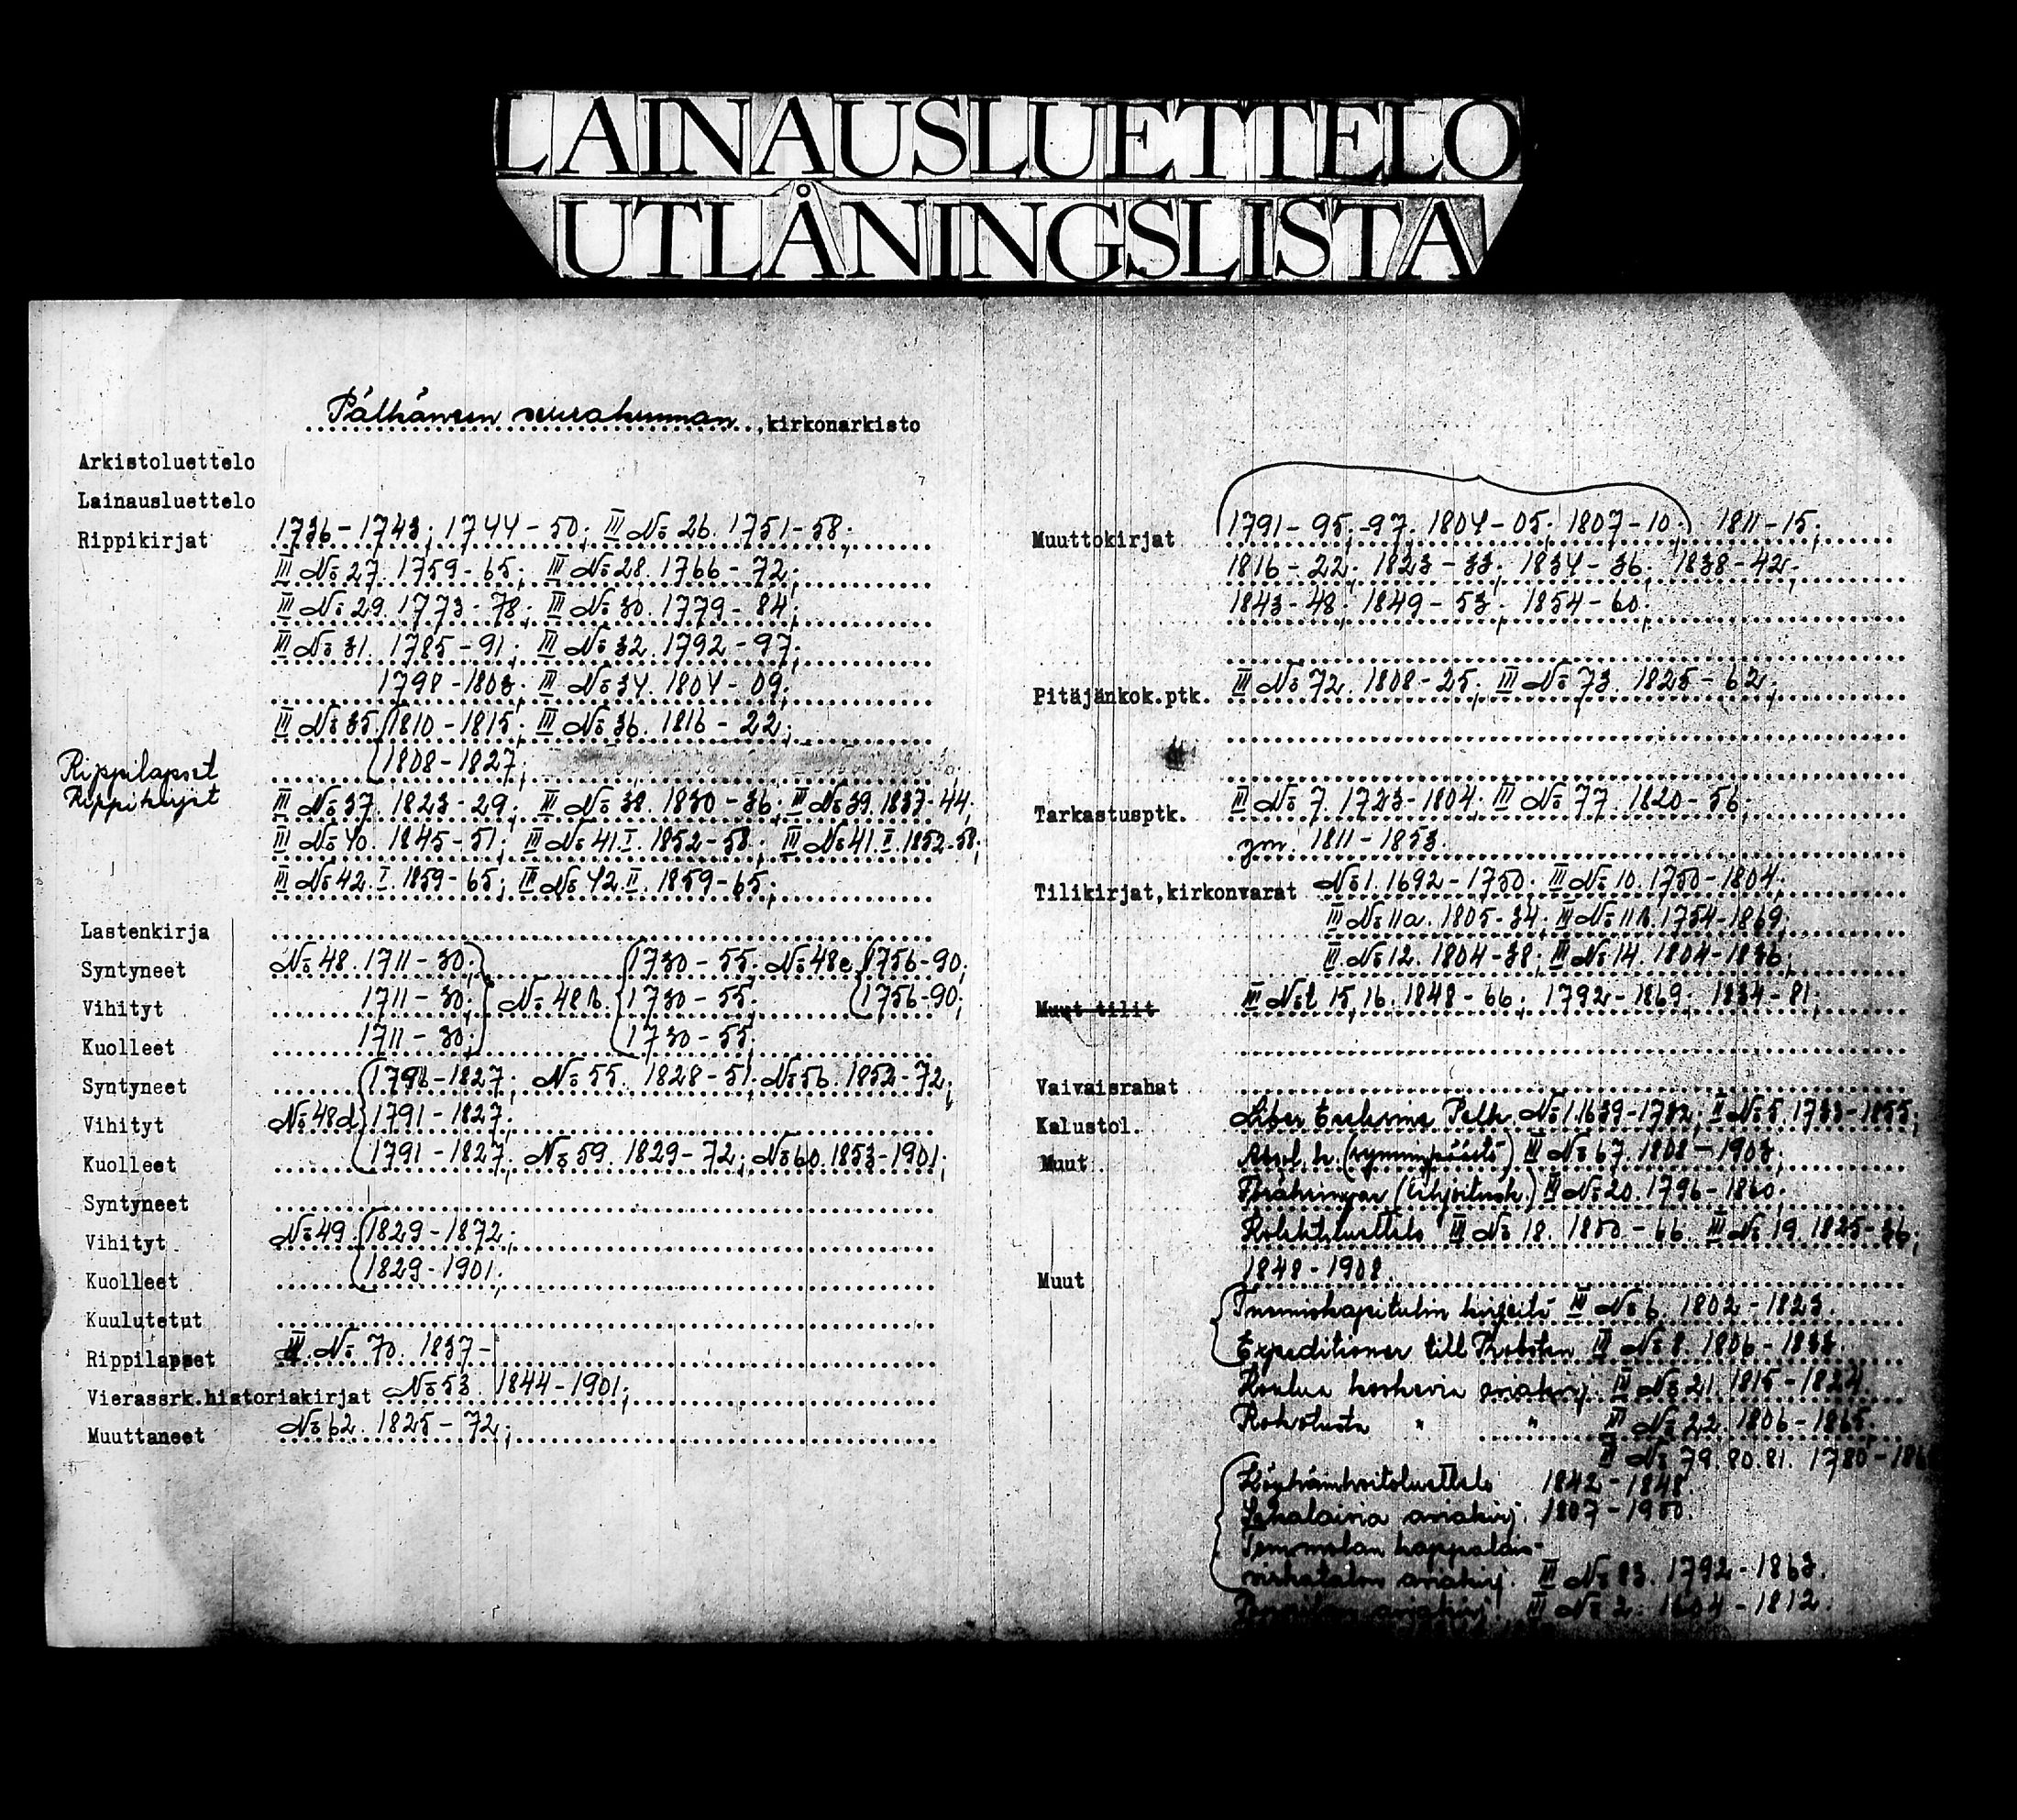 LAINAUSLUETTELO
UTLÅNINGSLISTA
Pälkäneen seurakunnan, kirkonarkisto
Arkistoluettelo
Lainausluettelo
Rippikirjat 1736-1743; 1744-50; III No 26. 1751-58;
III No 27. 1759-65; III No 28. 1766-72;
III No 29. 1773-78; III No 30. 1779-84;
III No 31. 1785-91; III No 32. 1792-97;
1798-1803; III No 34. 1804-09;
III No 35. 1810-1815; III No 36. 1816-22;
Rippilapset 1808-1827;
Rippikirjat III No 37. 1823-29; III No 38. 1830-36; III No 39. 1837-44;
III No 40. 1845-51; III No 41.I. 1852-58; III No 41.II. 1852-58;
III No 42.I. 1859-65; III No 42.II. 1859-65;
Lastenkirja
Syntyneet No 48. 1711-30; 1730-55; No 48c 1756-90;
Vihityt 1711-30; No 48b. 1730-55; 1756-90;
Kuolleet 1711-30; 1730-55;
Syntyneet 1796-1827; No 55. 1828-51; No 56. 1852-72;
Vihityt No 48d 1791-1827;
Kuolleet 1791-1827; No 59. 1829-72; No 60. 1853-1901;
Syntyneet
Vihityt No 49. 1829-1872;
Kuolleet 1829-1901;
Kuulutetut
Rippilapset III No 70. 1837-
Vierassrk.historiakirjat No 53. 1844-1901;
Muuttaneet No 62. 1825-72;
Muuttokirjat 1791-95; -97. 1804-05; 1807-10; 1811-15;
1816-22; 1823-33; 1834-36; 1838-42;
1843-48; 1849-53; 1854-60;
Pitäjänkok.ptk. III No 72. 1808-25; III No 73. 1825-62;
Tarkastusptk. III No 7. 1723-1804; III No 77. 1820-56;
ym. 1811-1853.
Tilikirjat,kirkonvarat No 1. 1692-1750; III No 10. 1750-1804;
III No 11a. 1805-34; III No 11b. 1754-1869;
III No 12. 1804-38; III No 14. 1804-1836;
Muut tilit III No 15, 16. 1848-66; 1792-1869; 1834-81;
Vaivaisrahat
Kalustol. Liber Pelk. No 1. 1639-1732; II No 5. 1733-1855;
Muut Absol. k. (synninpäästö) III No 67. 1808-1903;
(lihjoitusk.) III No 20. 1796-1860;
III No 18. 1850-66. III No 19. 1825-36;
Muut 1848-1908.
Tuomiokapitulin kirjeitä III No 6. 1802-1823.
Expeditioner till Probsten III No 8. 1806-1833.
Koulua koskevia asiakirj. III No 21. 1815-1824.
Rokotusta " " III No 22. 1806-1865.
III No 79. 80. 81. 1780-186
Köyhäinhoitoluettelo 1842-1848.
Sekalaisia asiakirj. 1807-1900.
kappalais-
virkatalon asiakirj. III No 83. 1792-1863.
asiakirj. III No 2. 1604-1812.